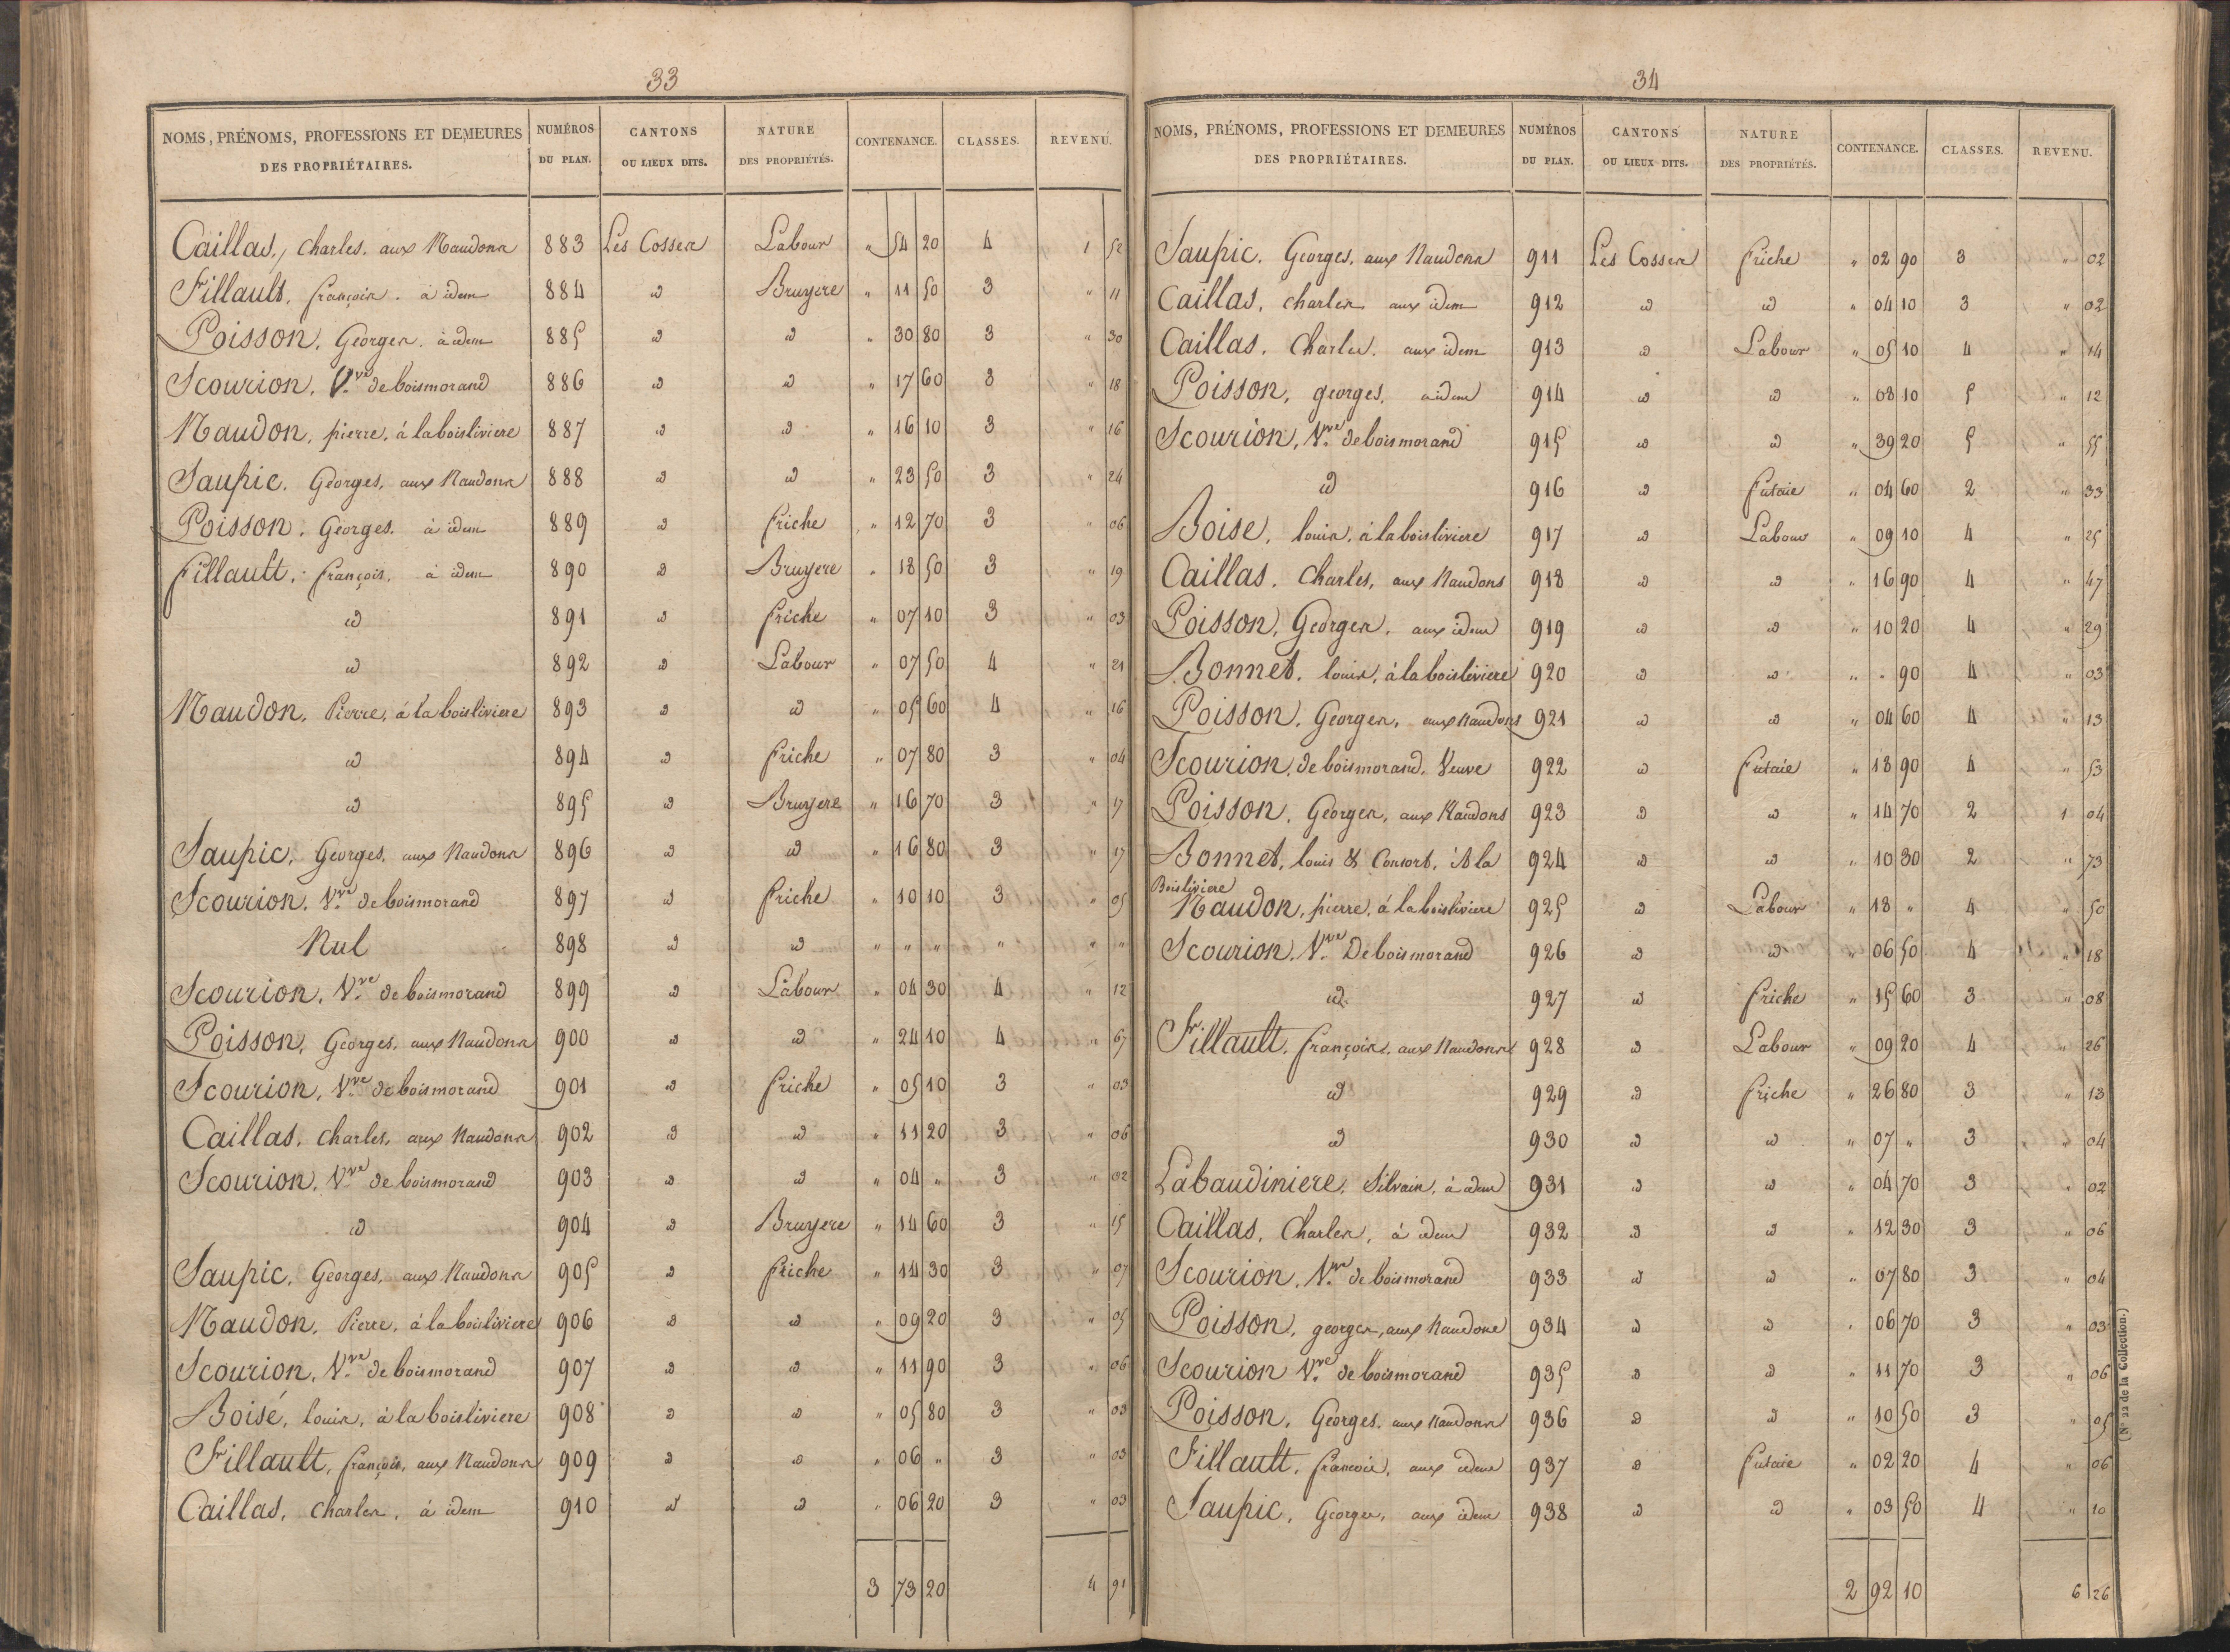 33
NOMS, PRÉNOMS, PROFESSIONS ET DEMEURES DES PROPRIÉTAIRES. NUMÉROS DU PLAN. CANTONS OU LIEUX DITS. NATURE DES PROPRIÉTÉS. CONTENANCE. CLASSES. REVENU.
Caillas, charles. aux Naudons 883 Les Cosses Labour " 54 20 4 1 52
Fillault, françois. à idem 884 id Bruyere " 11 50 3 " 11
Poisson, Georges. à idem 885 id id " 30 80 3 " 30
Scourion, Vve de boismorand 886 id id " 17 60 3 " 18
Naudon, pierre, à la boisliviere 887 id id " 16 10 3 " 16
Saupic. Georges, aux Naudons 888 id id " 23 50 3 " 24
Poisson. Georges. à idem 889 id friche " 12 70 3 " 06
fillault, françois, à idem 890 id Bruyere " 18 50 3 " 19
id 891 id friche " 07 10 3 " 03
id 892 id Labour " 07 50 4 " 21
Naudon, Pierre, à la boisliviere 893 id id " 05 60 4 " 16
id 894 id friche " 07 80 3 " 04
id 895 id Bruyere " 16 70 3 " 17
Saupic, Georges, aux Naudons 896 id id " 16 80 3 " 17
Scourion. Vve de boismorand 897 id friche " 10 10 3 " 05
Nul 898 id id " " " " " "
Scourion, Vve de boismorand 899 id Labour " 04 30 4 " 12
Poisson, Georges, aux Naudons 900 id id " 24 10 4 " 67
Scourion, Vve de boismorand 901 id friche " 05 10 3 " 03
Caillas, charles, aux Naudons 902 id id " 11 20 3 " 06
Scourion, Vve de boismorand 903 id id " 04 " 3 " 02
id 904 id Bruyere " 14 60 3 " 15
Saupic, Georges, aux Naudons 905 id friche " 14 30 3 " 07
Naudon, Pierre, à la boisliviere 906 id id " 09 20 3 " 05
Scourion, Vve de boismorand 907 id id " 11 90 3 " 06
Boisé, louis, à la boisliviere 908 id id " 05 80 3 " 03
Fillault, françois, aux Naudons 909 id id " 06 " 3 " 03
Caillas, charles, à idem 910 id id " 06 20 3 " 03
3 73 20 4 91
34
NOMS, PRÉNOMS, PROFESSIONS ET DEMEURES DES PROPRIÉTAIRES. NUMÉROS DU PLAN. CANTONS OU LIEUX DITS. NATURE DES PROPRIÉTÉS. CONTENANCE. CLASSES. REVENU.
Saupic. Georges, aux Naudons 911 Les Cosses friche " 02 90 3 " 02
Caillas, charles. aux idem 912 id id " 04 10 3 " 02
Caillas. Charles. aux idem 913 id Labour " 05 10 4 " 14
Poisson, georges, à idem 914 id id " 08 10 5 " 12
Scourion, Vve de boismorand 915 id id " 39 20 5 " 55
id 916 id futaie " 04 60 2 " 33
Boise, louis, à la boisliviere 917 id Labour " 09 10 4 " 25
Caillas. Charles, aux Naudons 918 id id " 16 90 4 " 47
Poisson, Georges. aux idem 919 id id " 10 20 4 " 29
Bonnet. louis, à la boisliviere 920 id id " " 90 4 " 03
Poisson, Georges, aux Naudons 921 id id " 04 60 4 " 13
Scourion, de boismorand, Veuve 922 id Futaie " 18 90 4 " 53
Poisson, Georges, aux Naudons 923 id id " 14 70 2 1 04
Bonnet, louis & Consort, à la 924 id id " 10 30 2 " 73
Boisliviere
Naudon, pierre, à la boisliviere 925 id Labour " 18 " 4 " 50
Scourion, Vve De boismorand 926 id id " 06 50 4 " 18
id 927 id friche " 15 60 3 " 08
Fillault, françois, aux Naudons 928 id Labour " 09 20 4 " 26
id 929 id friche " 26 80 3 " 13
id 930 id id " 07 " 3 " 04
Labaudiniere, Silvain, à idem 931 id id " 04 70 3 " 02
Caillas, Charles, à idem 932 id id " 12 30 3 " 06
Scourion, Vve de boismorand 933 id id " 07 80 3 " 04
Poisson, georges, aux Naudons 934 id id " 06 70 3 " 03
Scourion Vve de boismorand 935 id id " 11 70 3 " 06
Poisson, Georges, aux Naudons 936 id id " 10 50 3 " 05
Fillault, francois, aux idem 937 id Futaie " 02 20 4 " 06
Saupic, Georges, aux idem 938 id id " 03 50 4 " 10
2 92 10 6 26
(N° 22 de la Collection.)